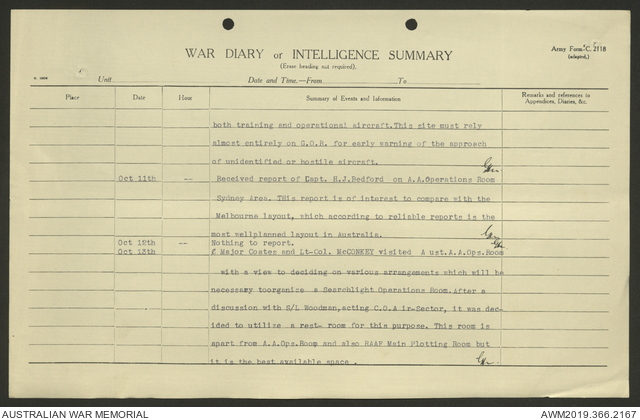 Army Form C. 2118
(adapted.)
WAR DIARY or INTELLIGENCE SUMMARY
(Erase heading not required).
Unit
Date and Time.—From To
Place Date Hour Summary of Events and Information Remarks and references in Appendices, Diaries, &c.
both training and operational aircraft.This site must rely
almost entirely on G.O.R. for early warning of the approach
of unidentified or hostile aircraft.
Oct 11th -- Received report of Capt. H.J.Redford on A.A.Operations Room
Sydney Area. THis report is of interest to compare with the
Melbourne layout, which according to reliable reports is the
most wellplanned layout in Australia.
Oct 12th -- Nothing to report.
Oct 13th Major Coates and Lt-Col. McCONKEY visited A ust.A.A.Ops.Room
with a view to deciding on various arrangements which will be
necessary toorganize a Searchlight Operations Room.After a
discussion with S/L Woodman,acting C.O.A ir-Sector, it was dec-
ided to utilize a rest- room for this purpose. This room is
apart from A.A.Ops.Room and also RAAF Main Plotting Room but
it is the best available space .
AUSTRALIAN WAR MEMORIAL
AWM2019.366.2167